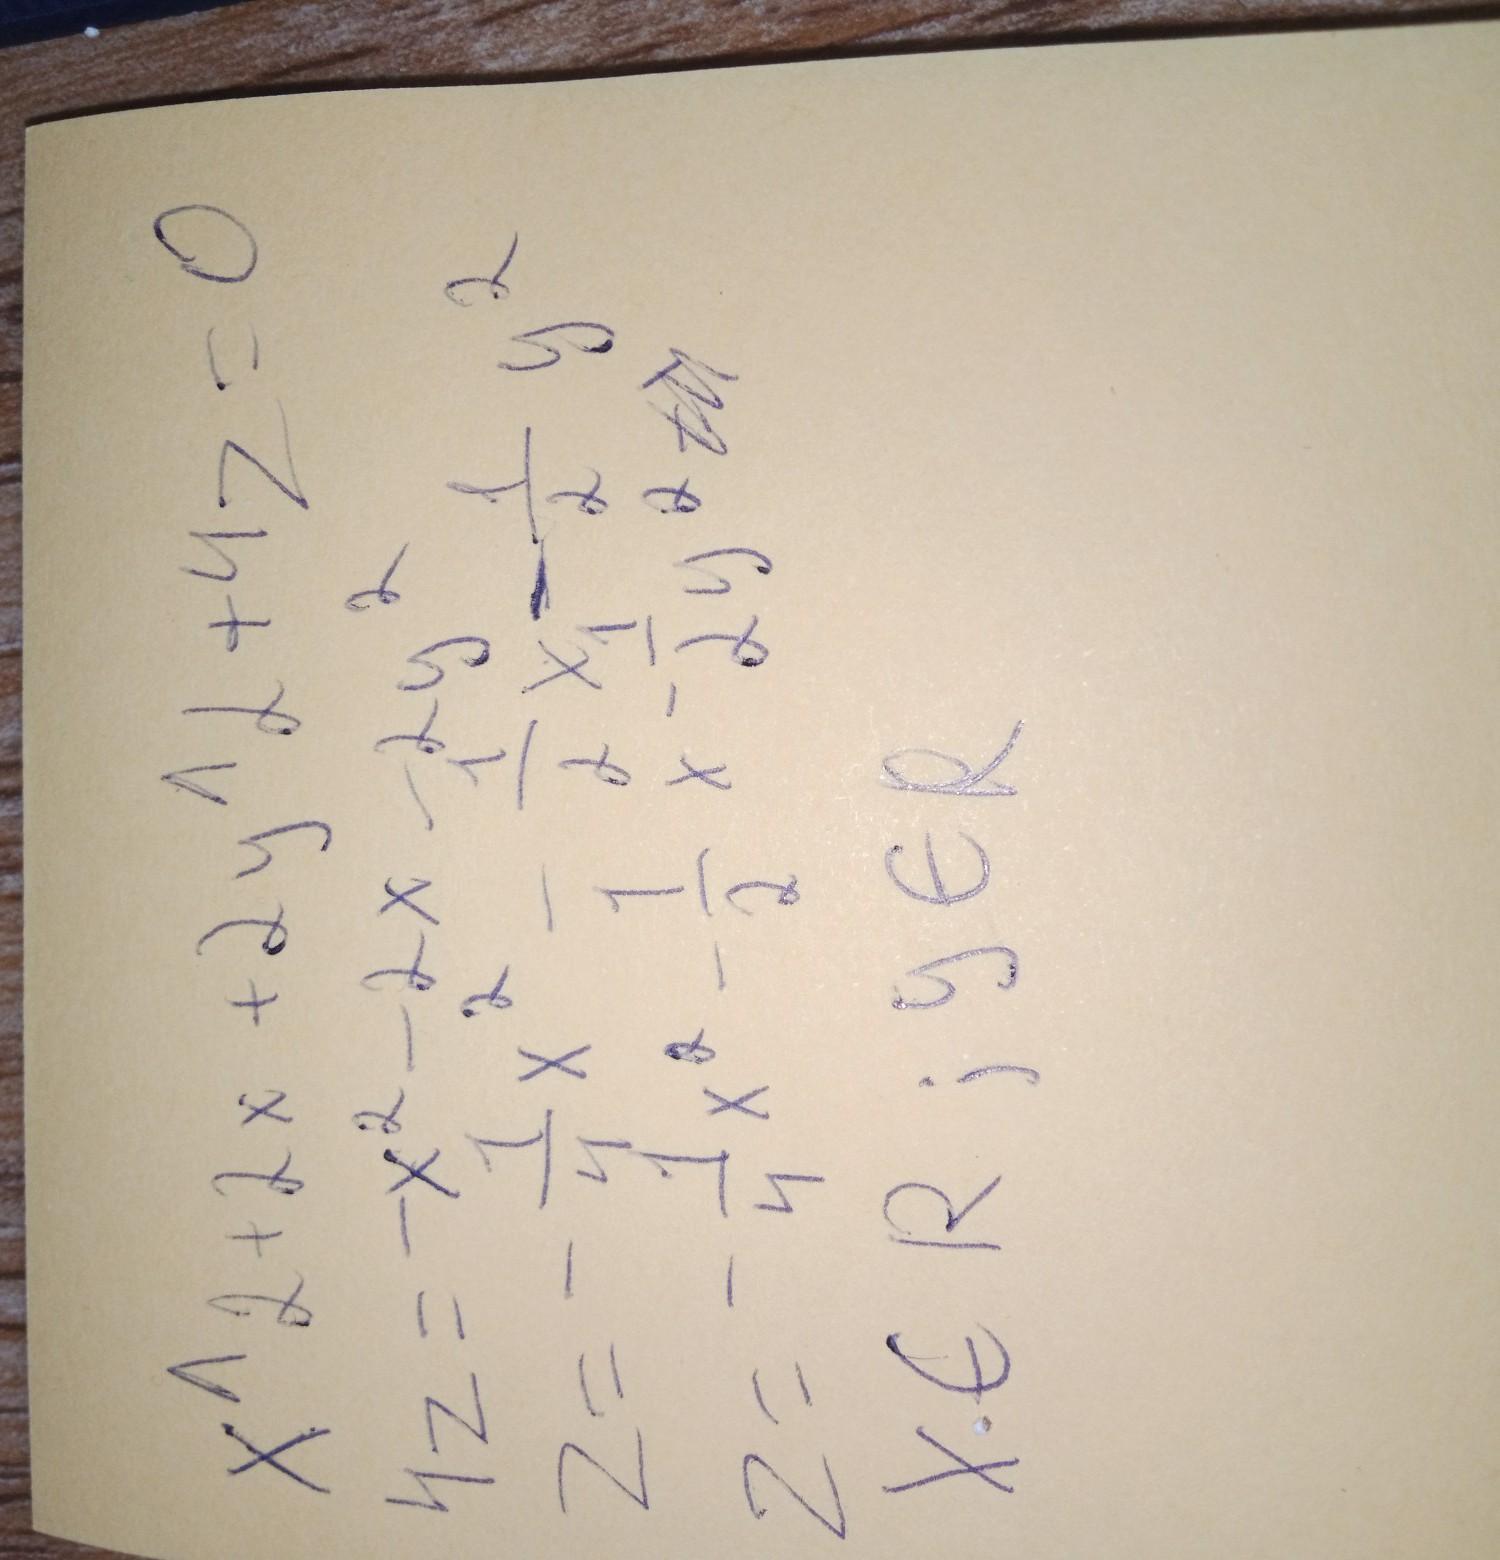 x^2+2x+2y^2+4z=0
4z=-x²-2x-2y²
z=-1/4x²-1/2x-1/2y²
z=-1/4x²-1/2x-1/2y²
x∈R;y∈R